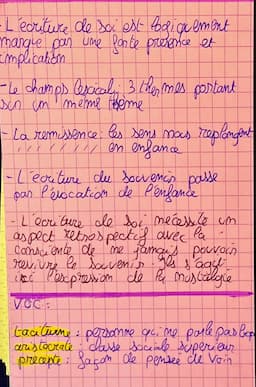 - L'ecriture de soi est logiquement
marque par une forte présence et
implication
- Le champs lexical, 3 thermes portant
sur un même thème
- La remissence: les sens nous replongent
en enfance
- L'écriture du souvenir passe
par l'évocation de l'enfance
- L'écriture de soi nécessite un
aspect retrospectif avec la
consciente de ne jamais pouvoir
revivre le souvenir
ici l'expression de la nostalgie
VOC:
taciturne: personne qui ne parle pas bcp
aristocrate: classe sociale superieur
précepte: façon de pensée de voir